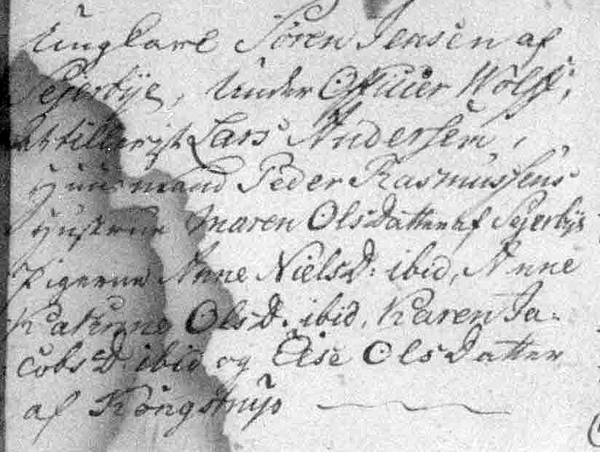 Ungkarl Sören Jensen af
Sejerbÿe, Under Officier Wolff,
Artillerist Lars Andersen,
Huusmand Peder Rasmussens
Hustrue Maren Olsdatter af Sejerbÿe
Pigerne Anne NielsD: ibid, Anne
Katrinne OlsD. ibid. Karen Ja-
cobsD: ibid og Else Olsdatter
af Kongstrup